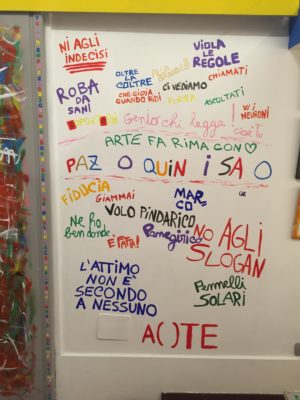 NI AGLI
INDECISI
VIOLA LE
REGOLE
OLTRE LA
COLTRE
CHIAMATI
ROBA
DA
SANI
CHE GIOIA
QUANDO RIDI
CI VEDIAMO
ASCOLTATI
W I
NEURONI
Gento chi legge
ARTE FA RIMA CON
PAZ O QUIN I SA O
FIDUCIA
GIAMMAI
MAR
CO
Ne ho
ben donde
VOLO PINDARICO
È FATA!
Panegirico
NO AGLI
SLOGAN
L'ATTIMO
NON È
SECONDO
A NESSUNO
Pennelli
SOLARI
A( )TE